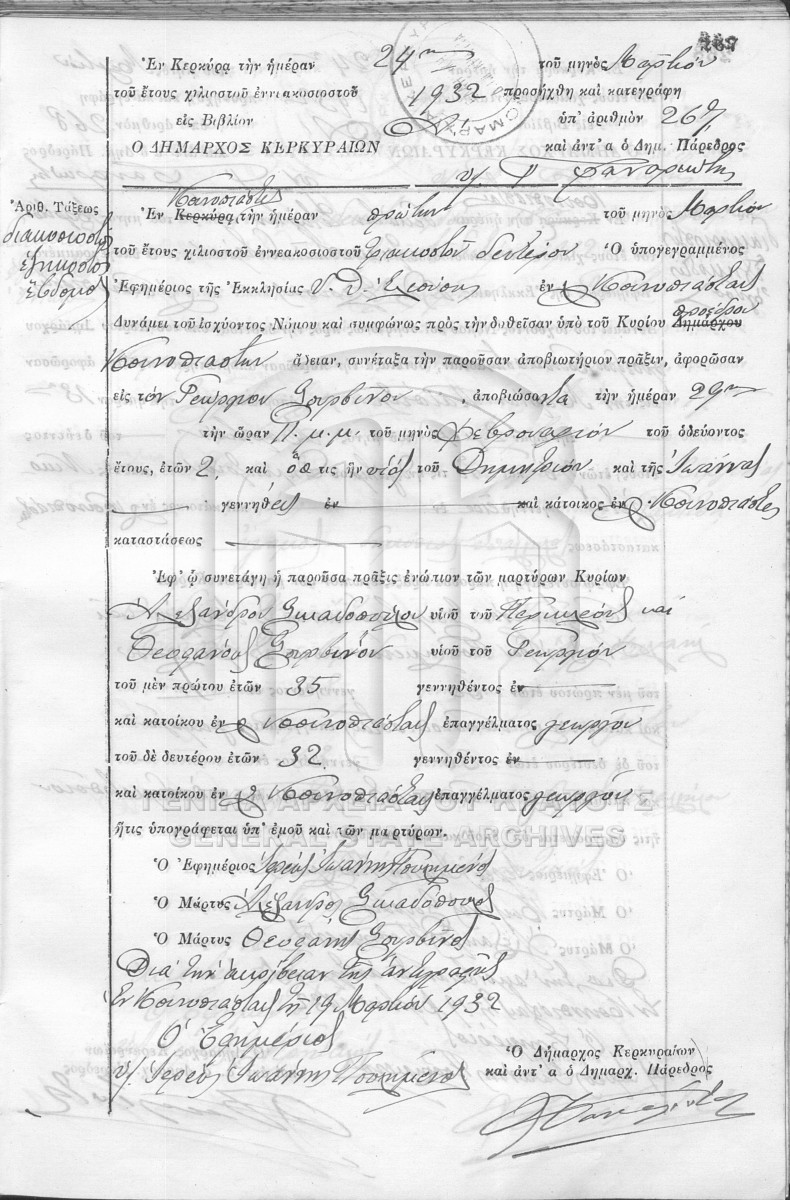 267
Ἐν Κερκύρᾳ τὴν ἡμέραν 24ην τοῦ μηνὸς Μαρτίου
τοῦ ἔτους χιλιοστοῦ ἐννεακοσιοστοῦ 1932 προσήχθη καὶ κατεγράφη
εἰς Βιβλίον ὑπ' ἀριθμὸν 267
Ο ΔΗΜΑΡΧΟΣ ΚΕΡΚΥΡΑΙΩΝ καὶ ἀντ' α ὁ Δημ. Πάρεδρος
Ἀριθ. Τάξεως
διακοσιοστὸς
ἑξηκοστὸς
ἕβδομος
Κοινοπιάστες
Ἐν Κερκύρᾳ τὴν ἡμέραν πρώτην τοῦ μηνὸς Μαρτίου
τοῦ ἔτους χιλιοστοῦ ἐννεακοσιοστοῦ τριακοστοῦ δευτέρου Ὁ ὑπογεγραμμένος
Ἐφημέριος τῆς Ἐκκλησίας Υ. Θ. Ἐλεούσης ἐν Κοινοπιάσταις
Δυνάμει τοῦ ἰσχύοντος Νόμου καὶ συμφώνως πρὸς τὴν δοθεῖσαν ὑπὸ τοῦ Κυρίου Δημάρχου προέδρου
Κοινοπιαστῶν ἄδειαν, συνέταξα τὴν παροῦσαν ἀποβιωτήριον πρᾶξιν, ἀφορῶσαν
εἰς τὸν Γεώργιον Σουρβῖνον, ἀποβιώσαντα τὴν ἡμέραν 29ην
τὴν ὥραν Π. μ. μ. τοῦ μηνὸς Φεβρουαρίου τοῦ ὁδεύοντος
ἔτους, ἐτῶν 2, καὶ ὅς τις ἦν υἱὸς τοῦ Δημητρίου καὶ τῆς Ἰωάννας
γεννηθεὶς ἐν καὶ κάτοικος ἐν Κοινοπιάστες
καταστάσεως
Ἐφ' ᾧ συνετάγη ἡ παροῦσα πρᾶξις ἐνώπιον τῶν μαρτύρων Κυρίων
Ἀλεξάνδρου Σκιαδοπούλου υἱοῦ τοῦ Περικλέους καὶ
Θεοφάνους Σουρβίνου υἱοῦ τοῦ Γεωργίου
τοῦ μὲν πρώτου ἐτῶν 35 γεννηθέντος ἐν
καὶ κατοίκου ἐν Κοινοπιάσταις ἐπαγγέλματος γεωργοῦ
τοῦ δὲ δευτέρου ἐτῶν 32 γεννηθέντος ἐν
καὶ κατοίκου ἐν Κοινοπιάσταις ἐπαγγέλματος γεωργοῦ
ΓΕΝΙΚΑ ΑΡΧΕΙΑ ΤΟΥ ΚΡΑΤΟΥΣ
ἥτις ὑπογράφεται ὑπ' ἐμοῦ καὶ τῶν μαρτύρων.
GENERAL STATE ARCHIVES
Ὁ Ἐφημέριος Ἱερεὺς Ἰωάννης
Ὁ Μάρτυς Ἀλέξανδρος Σκιαδόπουλος
Ὁ Μάρτυς Θεοφάνης Σουρβῖνος
Διὰ τὴν ἀκρίβειαν τῆς ἀντιγραφῆς
Ἐν Κοινοπιάσταις τῇ 19 Μαρτίου 1932
Ὁ Ἐφημέριος
Ὁ Δήμαρχος Κερκυραίων
καὶ ἀντ' α ὁ Δημαρχ. Πάρεδρος
υ/. Ἱερεὺς Ἰωάννης